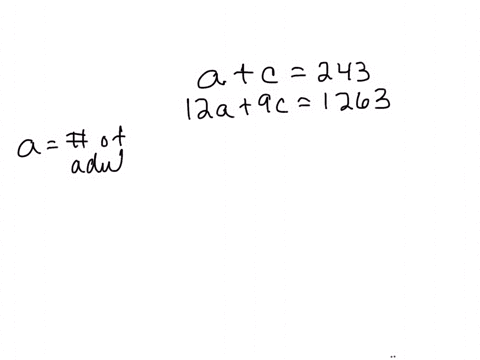 a + c = 243
12a + 9c = 1263
a = # of
adul